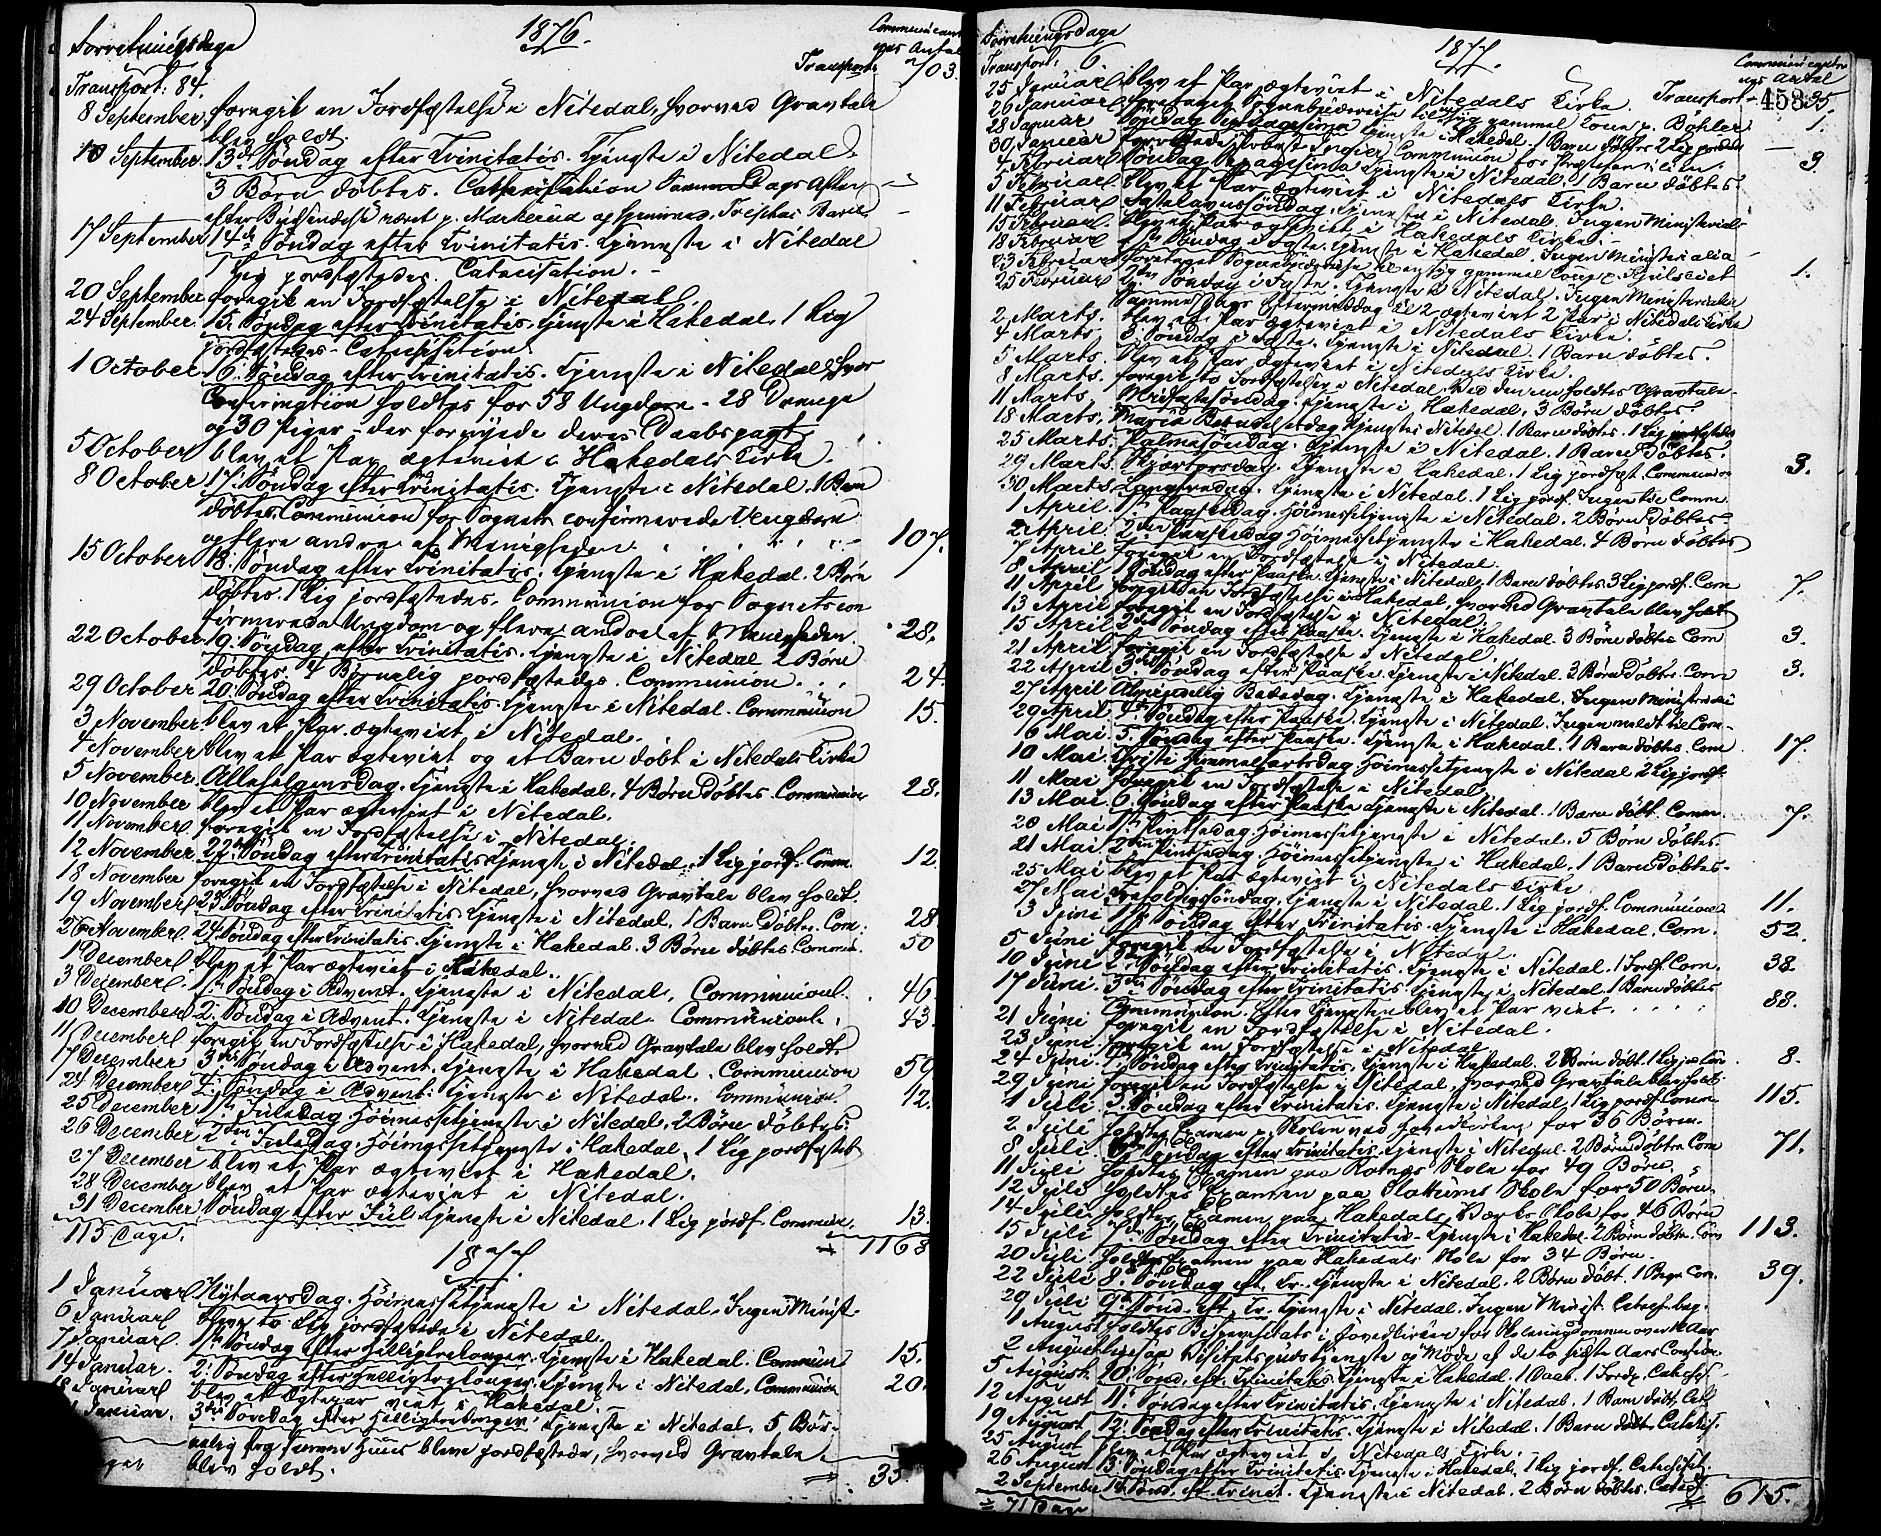 Forretningsdage
1876.
Communicanternes Antal
Transport: 84.
Transport: 703.
8 September foregik en Jordfæstelse i Nitedal, hvorved Gravtale
blev holdt.
10 September 13de Søndag efter Trinitatis. Tjeneste i Nitedal.
3 Børn døbtes. Catechisation
17 September 14de Søndag efter Trinitatis. Tjeneste i Nitedal
1 Lig jordfæstedes. Catecisation.
20 September foregik en Jordfæstelse i Nitedal
24 September 15. Søndag efter Trinitatis. Tjeneste i Hakedal. 1 Lig
jordfæstedes. Catechisation
1 October 16. Søndag efter Trinitatis. Tjeneste i Nitedal, hvor
Confirmation holdtes for 58 Ungdom - 28 Drenge
og 30 Piger - der fornyede deres Daabspagt
5 October blev et Par ægteviet i Hakedals Kirke.
8 October 17. Søndag efter Trinitatis. Tjeneste i Nitedal. 1 Barn
døbtes. Communion for Sognets confirmerede Ungdom
og flere andre af Menigheden 107.
15 October 18. Søndag efter Trinitatis. Tjeneste i Hakedal. 2 Børn
døbtes. 1 Lig jordfæstedes. Communion for Sognets con
firmerede Ungdom og flere andre af Menigheden. 28.
22 October 19. Søndag efter Trinitatis. Tjeneste i Nitedal 2 Børn
døbtes. 1 Børnelig jordfæstedes. Communion. 24.
29 October 20. Søndag efter Trinitatis. Tjeneste i Nitedal. Communion 15.
3 November blev et Par ægteviet i Nitedal.
4 November blev et Par ægteviet og et Barn døbt i Nitedals Kirke
5 November Allehelgensdag. Tjeneste i Hakedal. 4 Børn døbtes. Communion 28.
10 November blev et Par ægteviet i Nitedal.
11 November foregik en Jordfæstelse i Nitedal.
12 November 22. Søndag efter Trinitatis. Tjeneste i Nitedal. 1 Lig jordf. Comm. 12
18 November foregik en Jordfæstelse i Nitedal, hvorved Gravtale blev holdt.
19 November 23 Søndag efter Trinitatis. Tjeneste i Nitedal. 1 Barn døbtes. Com: 28
26 November 24 Søndag efter Trinitatis. Tjeneste i Hakedal. 3 Børn døbtes. Commun. 50
1 December blev et Par ægteviet i Hakedal.
3 December 1ste Søndag i Advent. Tjeneste i Nitedal, Communion. 46
10 December 2. Søndag i Advent. Tjeneste i Nitedal. Communion. 43
11 December foregik en Jordfæstelse i Hakedal, hvorved Gravtale blev holdt.
17 December 3die Søndag i Advent. Tjeneste i Hakedal. Communion 59
24 December 4. Søndag i Advent. Tjeneste i Nitedal. Communion 12.
25 December 1ste Juledag Høimessetjeneste i Nitedal. 2 Børn døbtes.
26 December 2den Juledag. Høimessetjeneste i Hakedal. 1 Lig jordfæstet
27 December blev et Par ægteviet i Hakedal.
28 December blev et Par ægteviet i Nitedal.
31 December Søndag efter Jul. Tjeneste i Nitedal. 1 Lig jordf. Commun. 13.
115 Dage. 1168
1877.
1 Januar Nytaarsdag. Høimessetjeneste i Nitedal. Ingen Minist.
6 Januar blev to Lig jordfæstede i Nitedal.
7 Januar 1ste Søndag efter Helligtrekonger. Tjeneste i Hakedal. Commun 15.
14 Januar. 2. Søndag efter Helligtrekonger. Tjeneste i Nitedal. Communion 20.
Januar blev et Ægtepar viet i Hakedal.
Januar. 3die Søndag efter Helligtrekonger. Tjeneste i Nitedal. 5 Bør-
nelig fra samme Huus bleve jordfæstede, hvorved Gravtale
blev holdt. 35
Forretningsdage
1877.
Communicanternes Antal
Transport: 6
Transport 35.
458
25 Januar blev et Par ægteviet i Nitedals Kirke.
26 Januar foretaget Sognebud gammel Kone p. Bøhler 1.
28 Januar Søndag Septuagesima Tjeneste i Hakedal. 1 Barn døbtes 2 Lig jordf.
30 Januar Communion for 3
4 Februar Søndag Sexagesima Tjeneste i Nitedal. 1 Barn døbtes
5 Februar blev et Par ægteviet i Nitedals Kirke.
11 Februar Fastelavnssøndag. Tjeneste i Nitedal. Ingen Ministerial
15 Februar. blev et Par ægteviet i Hakedals Kirke.
18 Februar 1ste Søndag i Faste. Tjeneste i Hakedal. Ingen Ministerialia
23 Februar foretaget gammel 1.
25 Februar 2den Søndag i Faste. Tjeneste i Nitedal. Ingen Ministerialia
Samme Dags Eftermiddag 2 Par i Nitedals Kirke
2 Marts. blev et Par ægteviet i Nitedals Kirke.
4 Marts 3. Søndag i Faste. Tjeneste i Nitedal. 1 Barn døbtes.
5 Marts. blev et Par ægteviet i Nitedals Kirke.
8 Marts. foregik to Jordfæstelser i Nitedal. Ved den ene holdtes Gravtale.
11 Marts. Midfastesøndag. Tjeneste i Hakedal. 3 Børn døbtes.
18 Marts. Mariæ Bebudelsesdag Tjeneste i Nitedal. 1 Barn døbtes. 1 Lig jordfæstedes
25 Marts. Palmesøndag. Tjeneste i Nitedal. 1 Barn døbtes.
29 Marts. Skjærtorsdag. Tjeneste i Hakedal. 1 Lig jordfæst. Communion 3.
30 Marts. Langfredag. Tjeneste i Nitedal. 1 Lig jordf. Ingen til Comm.
1 April. 1ste Paaskedag. Høimessetjeneste i Nitedal. 2 Børn døbtes.
2 April. 2den Paaskedag Høimessetjeneste i Hakedal. 4 Børn døbtes
7 April foregik en Jordfæstelse i Nitedal.
8 April 1 Søndag efter Paaske. Tjeneste i Nitedal. 1 Barn døbtes. 3 Lig jordf. Com 7.
11 April foregik en Jordfæstelse i Hakedal, hvorved Gravtale blev holdt
13 April foregik en Jordfæstelse i Nitedal.
15 April 2den Søndag efter Paaske. Tjeneste i Hakedal. 3 Børn døbtes. Com 3.
21 April foregik en Jordfæstelse i Nitedal.
22 April 3die Søndag efter Paaske. Tjeneste i Nitedal. 3 Børn døbtes. Com 3.
27 April Almindelig Bededag. Tjeneste i Hakedal. Ingen Ministerialia
29 April 4de Søndag efter Paaske. Tjeneste i Nitedal. Ingen meldt til Com.
16 Mai 5. Søndag efter Paaske. Tjeneste i Hakedal. 1 Barn døbtes. Com 17.
10 Mai Christi Himmelfartsdag Høimessetjeneste i Nitedal 2 Lig jordf.
11 Mai foregik en Jordfæstelse i Nitedal
13 Mai 6. Søndag efter Paaske Tjeneste i Nitedal. 1 Barn døbt. Comm. 7.
20 Mai 1ste Pintsedag Høimessetjeneste i Nitedal. 5 Børn døbtes.
21 Mai 2den Pintsedag. Høimessetjeneste i Hakedal. 1 Barn døbtes.
25 Mai blev et Par ægteviet i Nitedals Kirke
27 Mai Trefoldigsøndag. Tjeneste i Nitedal. 1 Lig jordf. Communion 11.
3 Juni 1ste Søndag efter Trinitatis. Tjeneste i Hakedal. Com. 52.
5 Juni foregik en Jordfæstelse i Nitedal.
10 Juni 2den Søndag efter Trinitatis. Tjeneste i Nitedal. 1 Jordf. Com. 38
17 Juni. 3die Søndag efter Trinitatis. Tjeneste i Nitedal. 1 Barn døbtes
Communion. Efter Tjenesten blev et Par viet. 88.
21 Juni foregik en Jordfæstelse i Nitedal.
23 Juni. foregik en Jordfæstelse i Nitedal
24 Juni 4de Søndag efter Trinitatis. Tjeneste i Hakedal. 2 Børn døbt. 1 Lig jordf. Com. 8.
29 Juni foregik en Jordfæstelse i Nitedal, hvorved Gravtale blev holdt.
1 Juli 5. Søndag efter Trinitatis. Tjeneste i Nitedal, 1 Lig jordf. Comm. 115.
2 Juli holdtes Examen p. Skolen ved Hovedkirken for 36 Børn.
8 Juli 6te Søndag efter Trinitatis. Tjeneste i Nitedal. 2 Børn døbtes Com 71.
11 Juli holdtes Examen paa Rotnes Skole for 49 Børn.
12 Juli holdtes Examen paa Slattums Skole for 50 Børn.
14 Juli holdtes Examen paa Hakedals Værks Skole for 46 Børn
15 Juli 7de Søndag efter Trinitatis. Tjeneste i Hakedal. 2 Børn døbtes. Com 113.
20 Juli holdtes Examen paa Hakedals Skole for 34 Børn.
22 Juli 8. Søndag eft. Tr. Tjeneste i Nitedal. 2 Børn døbt. 1 Begr. Com. 39.
29 Juli 9de Sønd. eft. Tr. Tjeneste i Nitedal. Ingen Minist. Catech.
1 August holdtes Bispevisitats i Hovedkirken for Skoleungdommen
2 August Visitatsgudstjeneste og Møde af de to sidste Aars Confirm.
5 August. 10. Sønd. eft. Trinitatis. Tjeneste i Hakedal. 1 Daab. 1 Jordf. Catechis.
12 August 11. Søndag efter Trinitatis. Tjeneste i Nitedal. 1 Barn døbt. Cat.
19 August 12. Søndag efter Trinitatis. Tjeneste i Nitedal. 1 Barn døbt. Catechis.
25 August blev et Par ægteviet i Nitedals Kirke.
26 August 13. Søndag efter Trinitatis. Tjeneste i Hakedal. 1 Lig jordf. Catechisat.
2 September 14. Sønd. eft. Trinit. Tjeneste i Nitedal. 2 Børn døbtes. Catech
71 Dage 615.